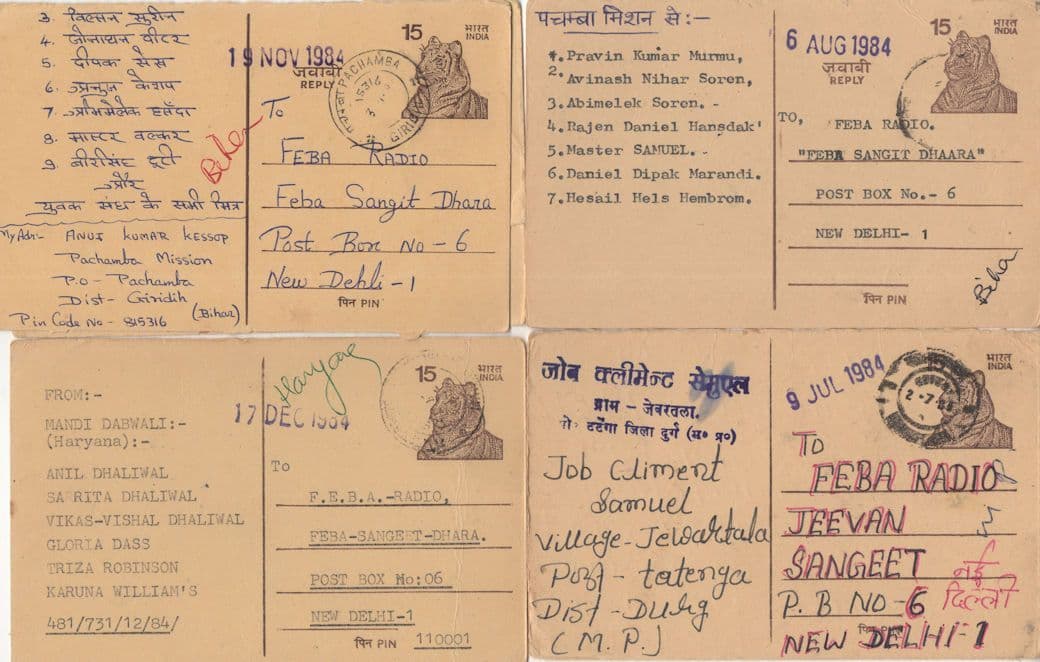 3. विल्सन सुरीन
4. जोनाथन पीटर
5. दीपक सेस
6. अनुज केशप
7. अभिमेलेक हसँदा
8. मास्टर वल्कर
9. बीरसिंह टूटी
और
युवक संघ के सभी मित्र
My Adr:- ANUJ KUMAR KESSOP
Pachamba Mission
P.O - Pachamba
Dist - Giridih
(Bihar)
Pin Code No - 815316
Bihar
19 NOV 1984
15 भारत
INDIA
जवाबी
REPLY
PACHAMBA
GIRIDIH
To
FEBA RADIO
Feba Sangit Dhara
Post Box No - 6
New Dehli - 1
पिन PIN
पचम्बा मिशन से:-
1. Pravin Kumar Murmu,
2. Avinash Nihar Soren,
3. Abimelek Soren. -
4. Rajen Daniel Hansdak'
5. Master SAMUEL. -
6. Daniel Dipak Marandi.
7. Hesail Hels Hembrom.
6 AUG 1984
15 भारत
INDIA
जवाबी
REPLY
TO, FEBA RADIO.
"FEBA SANGIT DHAARA"
POST BOX No.- 6
NEW DELHI- 1
पिन PIN
Bihar
FROM:-
MANDI DABWALI:-
(Haryana):-
ANIL DHALIWAL
SARITA DHALIWAL
VIKAS-VISHAL DHALIWAL
GLORIA DASS
TRIZA ROBINSON
KARUNA WILLIAM'S
481/731/12/84/
Haryana
17 DEC 1984
15 भारत
INDIA
To
F.E.B.A.-RADIO,
FEBA-SANGEET-DHARA.
POST BOX No:06
NEW DELHI-1
पिन PIN 110001
जोब क्लीमेन्ट सेमुएल
ग्राम - जेवरतला.
पो० टटेंगा जिला दुर्ग (म० प्र०)
Job Climent
Samuel
Village - Jewartala
Post - tatenga
Dist - Durg
(M.P.)
9 JUL 1984
भारत
INDIA
TO
FEBA RADIO
JEEVAN
SANGEET
नई
दिल्ली
P.B NO - 6
NEW DELHI-1
पिन PIN